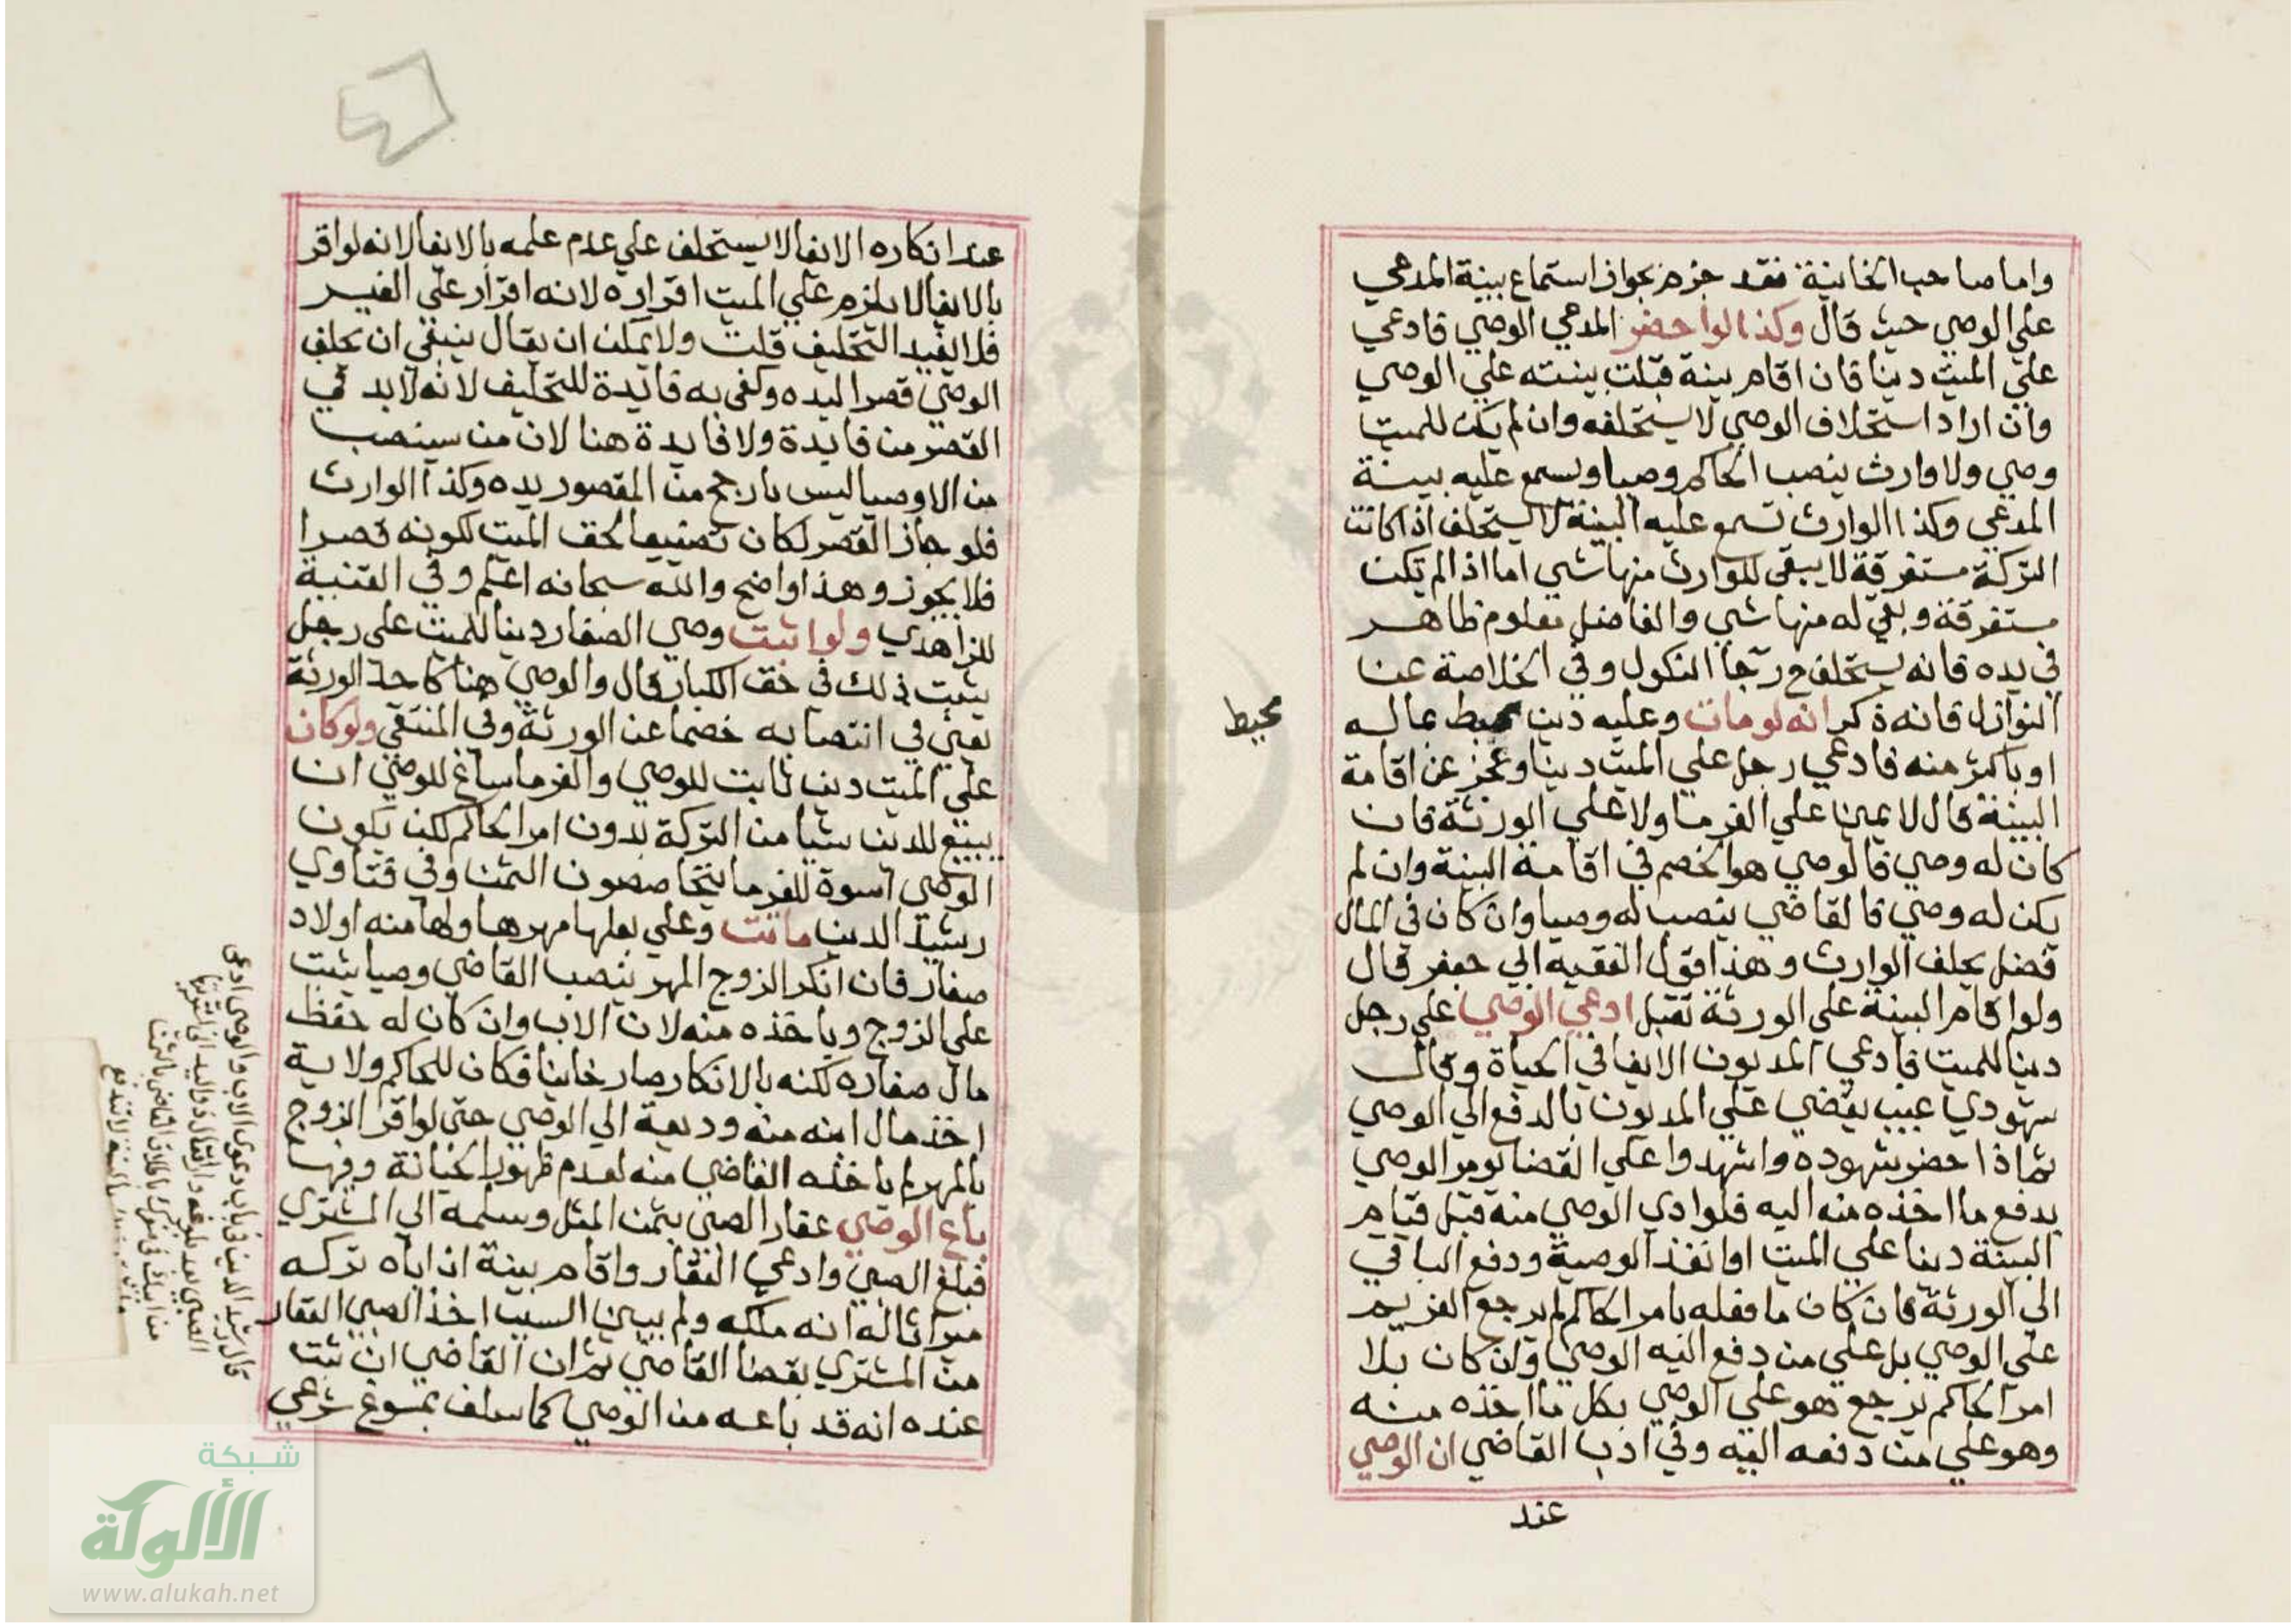 واما صاحب الخانية فقد جزم بجواز استماع بينة المدعي
علي الوصي حيث قال وكذا لو احضر المدعي الوصي فادعي
علي الميت دينا فان اقام بينة قبلت بينته علي الوصي
وان اراد استحلاف الوصي لا يستحلفه وان لم يكن للميت
وصي ولا وارث ينصب الحاكم وصيا ويسمع عليه بينة
المدعي وكذا الوارث تسمع عليه البينة لا يستحلف اذا كانت
التركة مستغرقة لا يبقي للوارث منها شي اما اذا لم تكن
مستغرقة وبقي له منها شي والفاضل معلوم ظاهر
في يده فانه يستحلف ح رجا النكول وفي الخلاصة عن
النوازل فانه ذكر انه لو مات وعليه دين محيط بماله
محيط
او باكثر منه فادعي رجل علي الميت دينا وعجز عن اقامة
البينة قال لا يمين علي الغرما ولا علي الورثة فان
كان له وصي فالوصي هو الخصم في اقامة البينة وان لم
يكن له وصي فالقاضي ينصب له وصيا وان كان في المال
فضل يحلف الوارث وهذا قول الفقيه ابي جعفر قال
ولو اقام البينة علي الورثة تقبل ادعي الوصي علي رجل
دينا للميت فادعي المديون الايفا في الحياة وقال
شهودي غيب يقضي علي المديون بالدفع الي الوصي
ثم اذا احضر شهوده واشهدوا علي القضا يومر الوصي
بدفع ما اخذه منه اليه فلو ادي الوصي منه قبل قيام
البينة دينا علي الميت او انفذ الوصية ودفع الباقي
الي الورثة فان كان ما فعله بامر الحاكم لم يرجع الغريم
علي الوصي بل علي من دفع اليه الوصي وان كان بلا
امر الحاكم يرجع هو علي الوصي بكل ما اخذه منه
وهو علي من دفعه اليه وفي ادب القاضي ان الوصي
عند
عند انكاره الايفا لا يستحلف علي عدم علمه بالايفا لانه لو اقر
بالايفا لا يلزم علي الميت اقراره لانه اقرار علي الغير
فلا يفيد التحليف قلت ولا يمكن ان يقال ينبغي ان يحلف
الوصي قصرا ليده وكفي به فايدة للتحليف لانه لا بد في
القصر من فايدة ولا فايدة هنا لان من سينصب
من الاوصيا ليس بارجح من المقصور يده وكذا الوارث
فلو جاز القصر لكان تضييعا لحق الميت لكونه قصرا
فلا يجوز وهذا واضح والله سبحانه اعلم وفي القنية
للزاهدي ولو اثبت وصي الصغار دينا للميت علي رجل
يثبت ذلك في حق الكبار قال والوصي هنا كاحد الورثة
يعني في انتصابه خصما عن الورثة وفي المنتقي ولو كان
علي الميت دين ثابت للوصي والغرما ساغ للوصي ان
يبيع للدين شيا من التركة بدون امر الحاكم لكن يكون
الوصي اسوة للغرما يتخاصصون الثمن وفي فتاوي
رشيد الدين ماتت وعلي بعلها مهرها ولها منه اولاد
صغار فان انكر الزوج المهر ينصب القاضي وصيا يثبت
علي الزوج وياخذه منه لان الاب وان كان له حفظ
مال صغاره لكنه بالانكار صار خاينا فكان للحاكم ولاية
اخذ مال ابنه منه ووديعة الي الوصي حتي لو اقر الزوج
بالمهر لم ياخذه القاضي منه لعدم ظهور الخيانة وفيها
باع الوصي عقار الصبي بثمن المثل وسلمه الي المشتري
فبلغ الصبي وادعي العقار واقام بينة ان اباه تركه
ميراثا له انه ملكه ولم يبين السبب اخذ الصبي العقار
من المشتري بقضا القاضي ثم ان القاضي ان ثبت
عنده انه قد باعه من الوصي كما سلف بمسوغ شرعي
قال رشيد الدين في باب دعوي الاب والوصي ادعي
شبكة
الألوكة
www.alukah.net